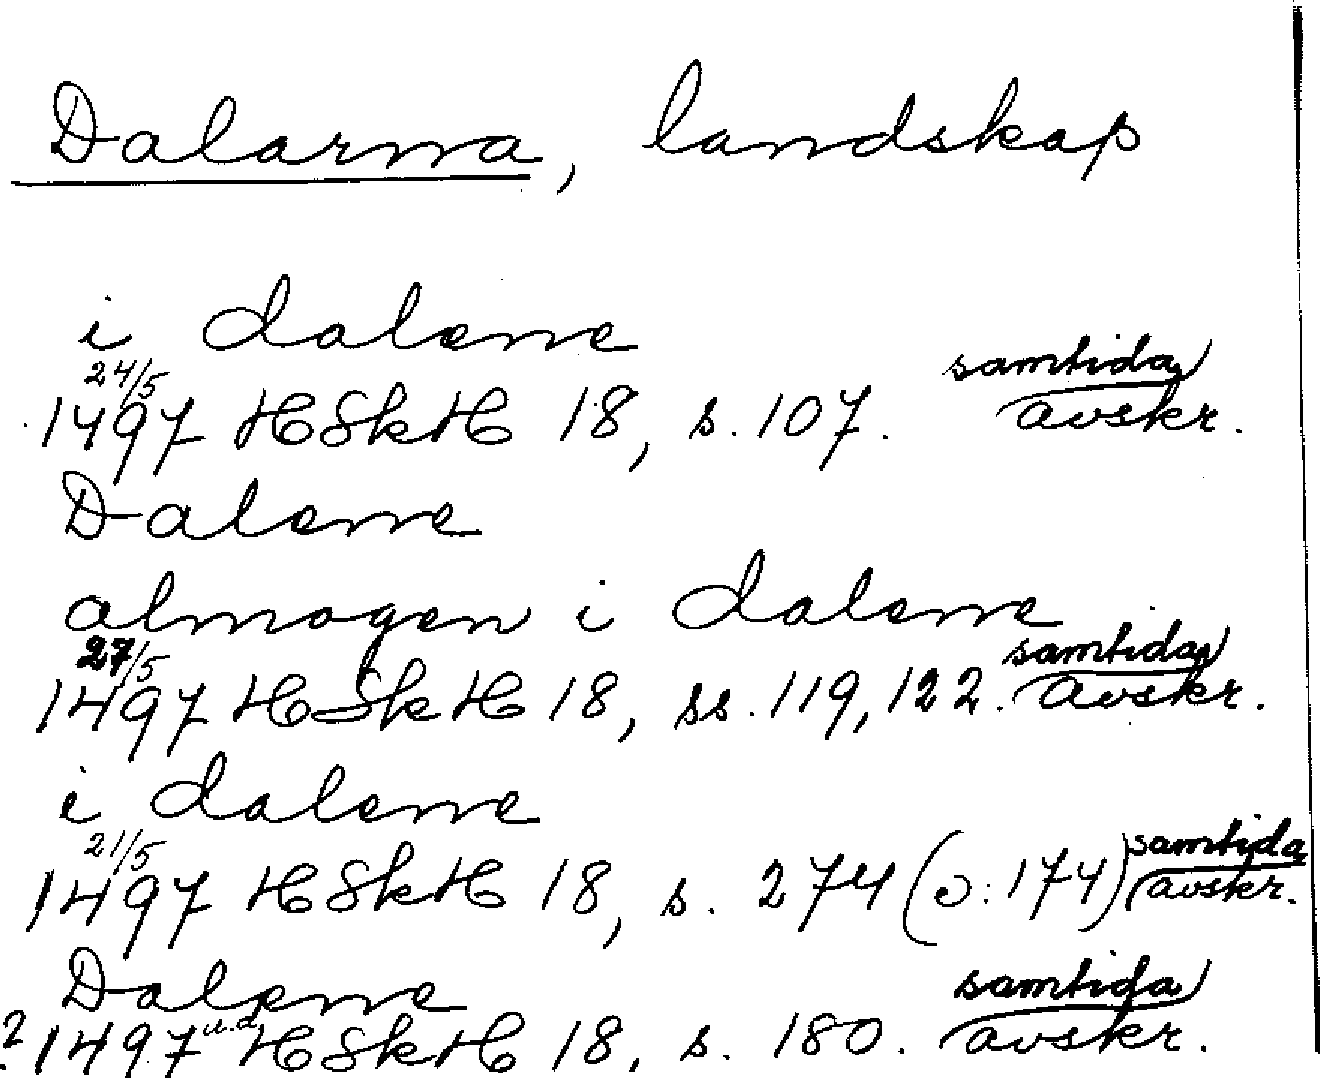 Dalarna, landskap
i dalene
24/5 samtida
1497 HSkH 18, s. 107. avskr.
Dalene
almogen i dalene
27/5 samtida
1497 HSkH 18, ss. 119, 122. avskr.
i dalene
21/5 samtida
1497 HSkH 18, s. 274 (o: 174) avskr.
Dalene samtida
? 1497 u.d. HSkH 18, s. 180. avskr.